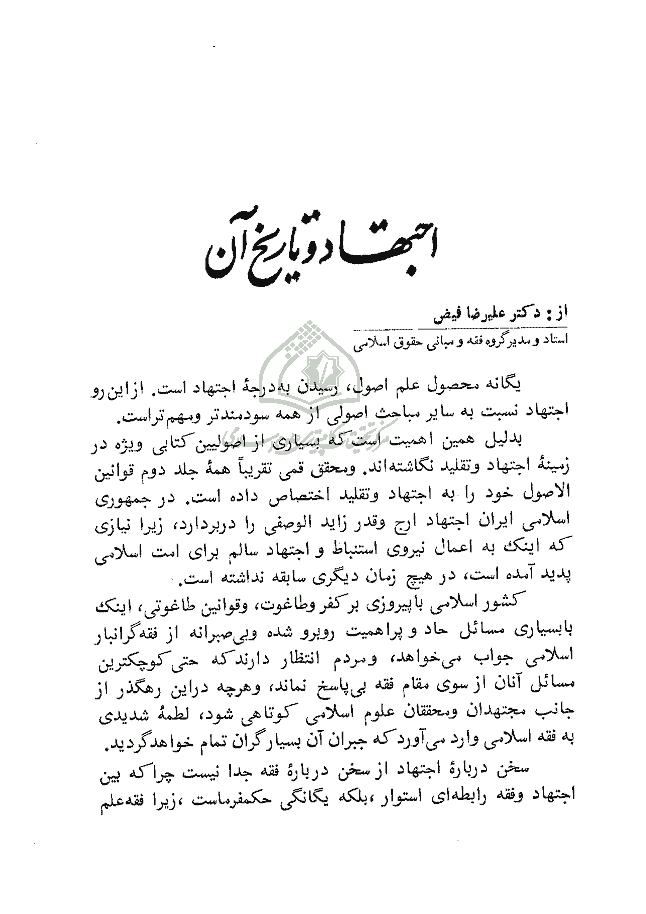 اجتهاد و تاریخ آن
از: دکتر علیرضا فیض
استاد و مدیر گروه فقه و مبانی حقوق اسلامی
یگانه محصول علم اصول، رسیدن به‌درجهٔ اجتهاد است. از این رو
اجتهاد نسبت به سایر مباحث اصولی از همه سودمندتر ومهم‌تراست.
بدلیل همین اهمیت است‌که بسیاری از اصولیین کتابی ویژه در
زمینهٔ اجتهاد وتقلید نگاشته‌اند. ومحقق قمی تقریباً همهٔ جلد دوم قوانین
الاصول خود را به اجتهاد وتقلید اختصاص داده است. در جمهوری
اسلامی ایران اجتهاد ارج وقدر زاید الوصفی را دربردارد، زیرا نیازی
که اینك به اعمال نیروی استنباط و اجتهاد سالم برای امت اسلامی
پدید آمده است، در هیچ زمان دیگری سابقه نداشته است.
کشور اسلامی باپیروزی برکفر وطاغوت، وقوانین طاغوتی، اینك
بابسیاری مسائل حاد و پراهمیت روبرو شده وبی‌صبرانه از فقه‌گرانبار
اسلامی جواب می‌خواهد، ومردم انتظار دارندکه حتی‌کوچکترین
مسائل آنان از سوی مقام فقه بی‌پاسخ نماند، وهرچه دراین رهگذر از
جانب مجتهدان ومحققان علوم اسلامی کوتاهی شود، لطمهٔ شدیدی
به فقه اسلامی وارد می‌آوردکه جبران آن بسیارگران تمام خواهدگردید.
سخن دربارهٔ اجتهاد از سخن دربارهٔ فقه جدا نیست چراکه بین
اجتهاد وفقه رابطه‌ای استوار ،بلکه یگانگی حکمفرماست ،زیرا فقه‌علم